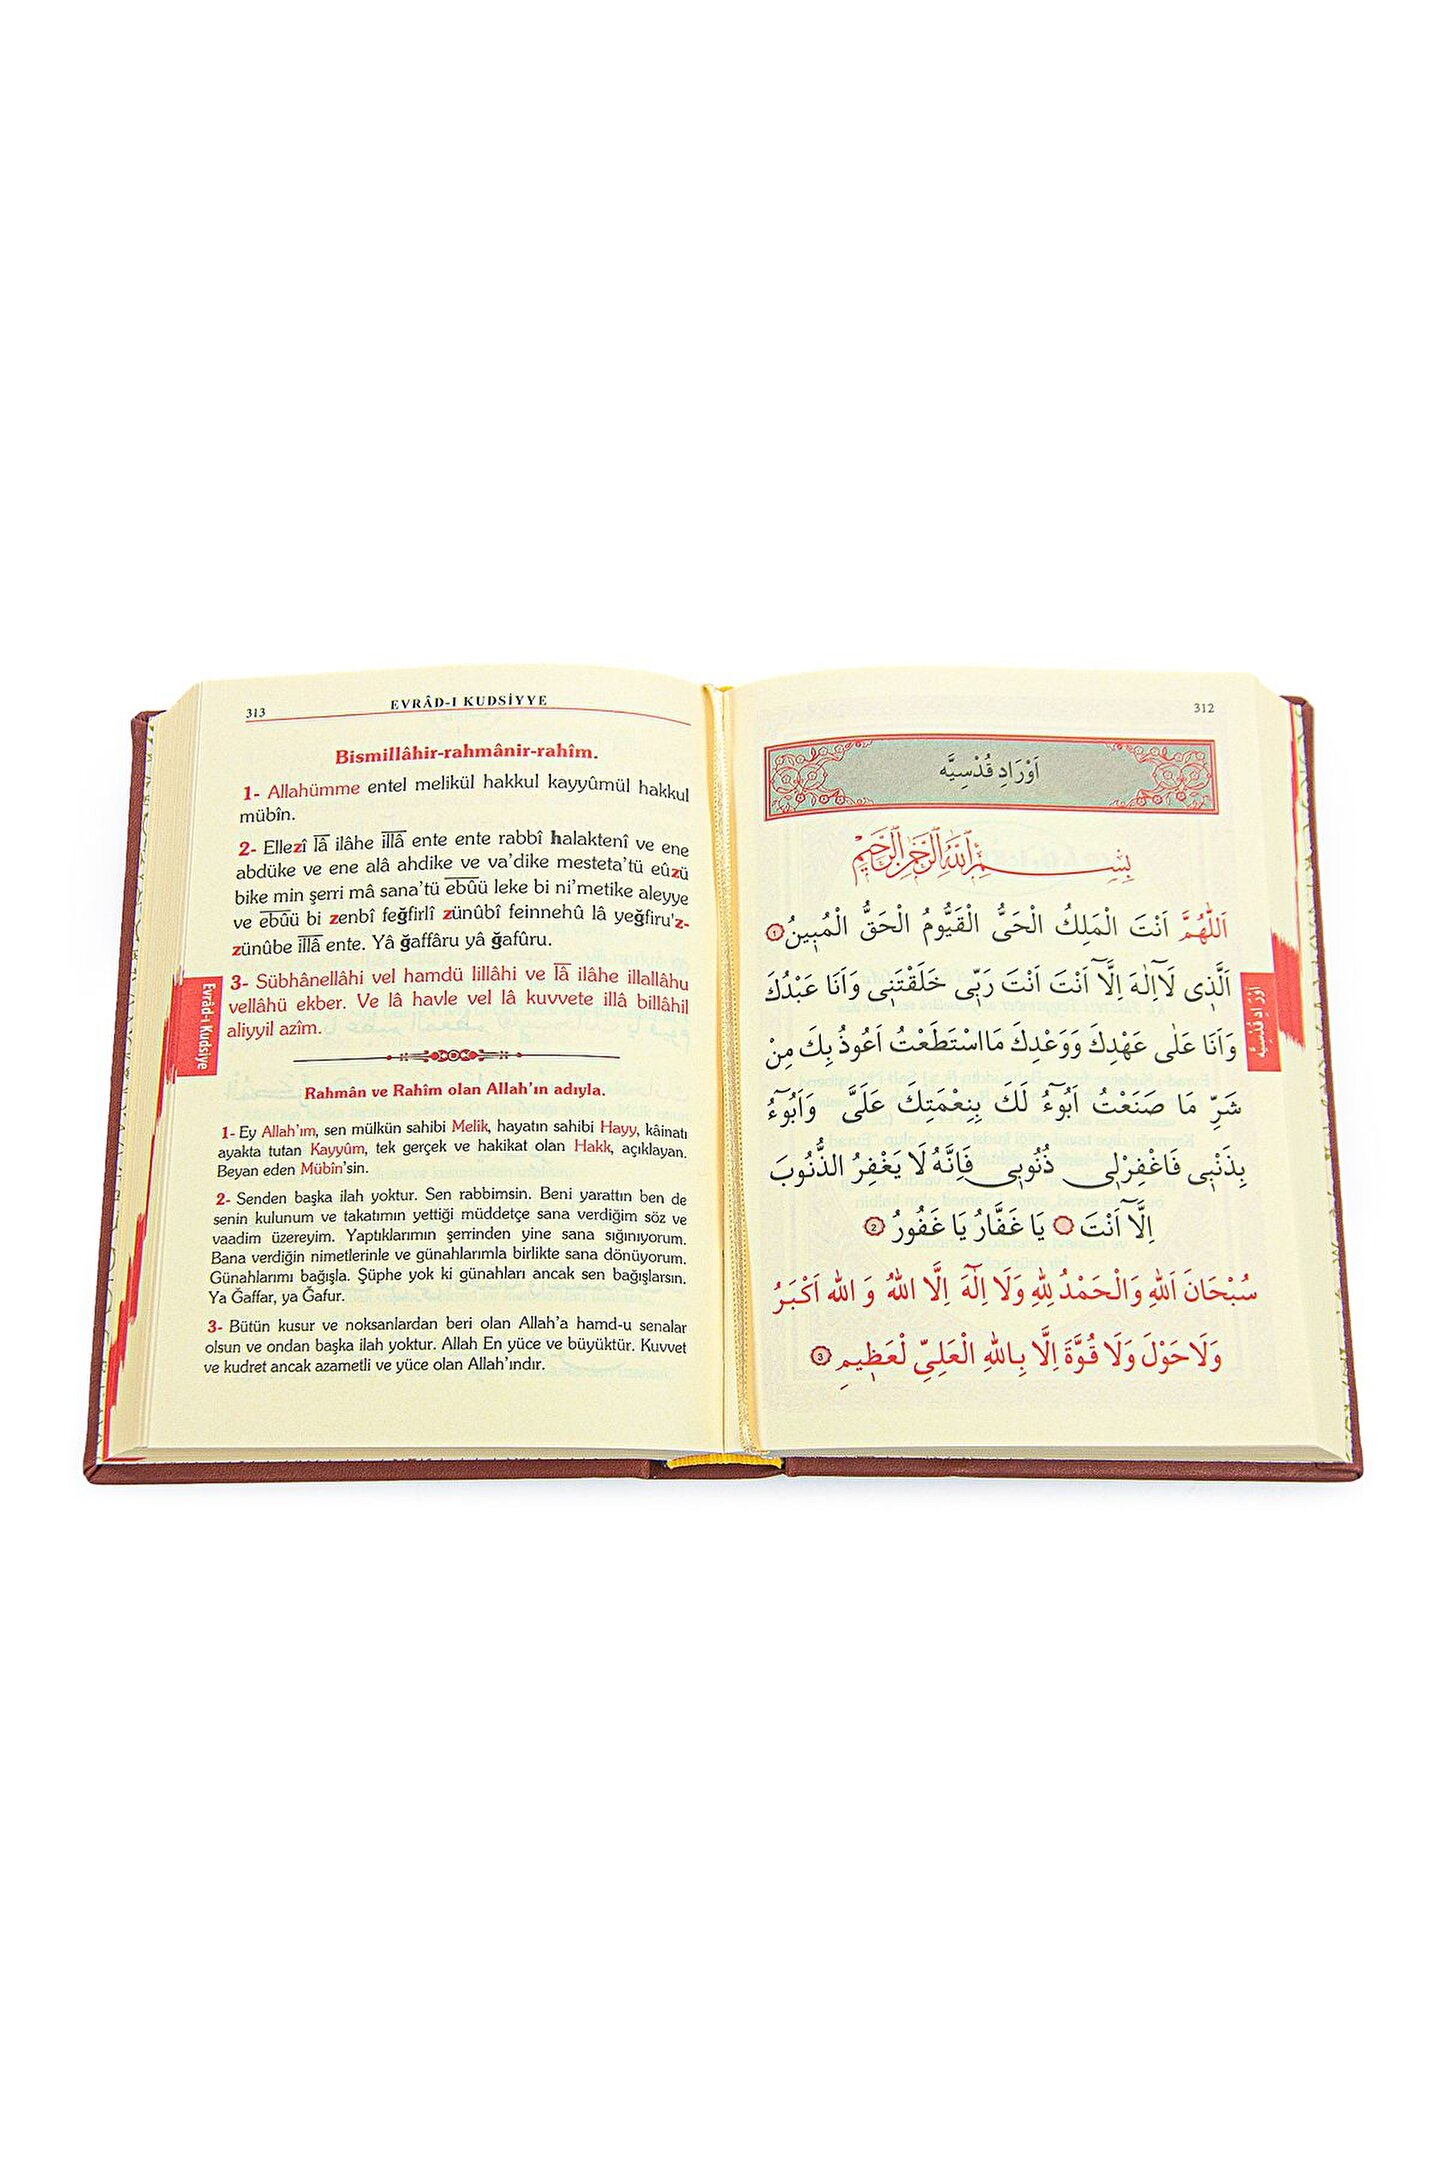 312
اَوْرَادِ قُدْسِيَّه
بِسْمِ اللّٰهِ الرَّحْمٰنِ الرَّحِيمِ
اَللّٰهُمَّ اَنْتَ الْمَلِكُ الْحَىُّ الْقَيُّومُ الْحَقُّ الْمُبِينُ ١
اَلَّذِى لَآاِلٰهَ اِلَّآ اَنْتَ اَنْتَ رَبِّى خَلَقْتَنِى وَاَنَا عَبْدُكَ
وَاَنَا عَلٰى عَهْدِكَ وَوَعْدِكَ مَااسْتَطَعْتُ اَعُوذُ بِكَ مِنْ
شَرِّ مَا صَنَعْتُ اَبُوٓءُ لَكَ بِنِعْمَتِكَ عَلَىَّ وَاَبُوٓءُ
بِذَنْبِى فَاغْفِرْلِى ذُنُوبِى فَاِنَّهُ لَا يَغْفِرُ الذُّنُوبَ
اِلَّآ اَنْتَ يَا غَفَّارُ يَا غَفُورُ ٢
سُبْحَانَ اَللّٰهِ وَالْحَمْدُ لِلّٰهِ وَلَا اِلٰهَ اِلَّا اللّٰهُ وَ اللّٰه اَكْبَرُ
وَلَاحَوْلَ وَلَا قُوَّةَ اِلَّا بِاللّٰهِ الْعَلِىِّ لْعَظِيمِ ٣
اَوْرَادِ قُدْسِيَّه
313 EVRÂD-I KUDSİYYE
Bismillâhir-rahmânir-rahîm.
1- Allahümme entel melikül hakkul kayyûmül hakkul
mübîn.
2- Ellezî lâ ilâhe illâ ente ente rabbî halaktenî ve ene
abdüke ve ene alâ ahdike ve va'dike mesteta'tü eûzü
bike min şerri mâ sana'tü ebûü leke bi ni'metike aleyye
ve ebûü bi zenbî feğfirlî zünûbî feinnehû lâ yeğfiru'z-
zünûbe illâ ente. Yâ ğaffâru yâ ğafûru.
3- Sübhânellâhi vel hamdü lillâhi ve lâ ilâhe illallâhu
vellâhü ekber. Ve lâ havle vel lâ kuvvete illâ billâhil
aliyyil azîm.
Rahmân ve Rahîm olan Allah'ın adıyla.
1- Ey Allah'ım, sen mülkün sahibi Melik, hayatın sahibi Hayy, kâinatı
ayakta tutan Kayyûm, tek gerçek ve hakikat olan Hakk, açıklayan.
Beyan eden Mübîn'sin.
2- Senden başka ilah yoktur. Sen rabbimsin. Beni yarattın ben de
senin kulunum ve takatımın yettiği müddetçe sana verdiğim söz ve
vaadim üzereyim. Yaptıklarımın şerrinden yine sana sığınıyorum.
Bana verdiğin nimetlerinle ve günahlarımla birlikte sana dönüyorum.
Günahlarımı bağışla. Şüphe yok ki günahları ancak sen bağışlarsın.
Ya Ğaffar, ya Ğafur.
3- Bütün kusur ve noksanlardan beri olan Allah'a hamd-u senalar
olsun ve ondan başka ilah yoktur. Allah En yüce ve büyüktür. Kuvvet
ve kudret ancak azametli ve yüce olan Allah'ındır.
Evrâd-ı Kudsiye